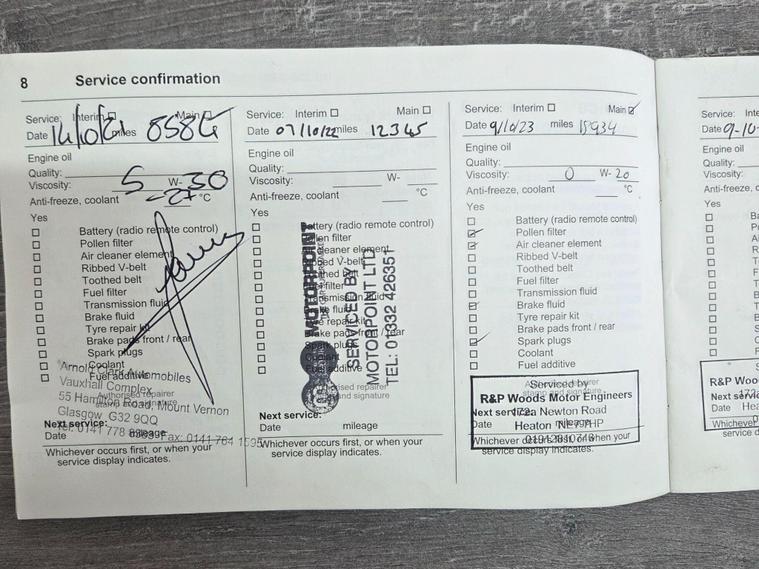 8 Service confirmation
Service: Interim Main
Date 14/10/21 miles 8584
Engine oil
Quality:
Viscosity: 5 W- 30
Anti-freeze, coolant °C
Yes
Battery (radio remote control)
Pollen filter
Air cleaner element
Ribbed V-belt
Toothed belt
Fuel filter
Transmission fluid
Brake fluid
Tyre repair kit
Brake pads front / rear
Spark plugs
Coolant
Fuel additive
Arnold Clark Automobiles
Vauxhall Complex
Authorised repairer
stamp and signature
55 Hamilton Road, Mount Vernon
Glasgow G32 9QQ
Next service:
Tel: 0141 778 8383 Fax: 0141 764 1595
Date mileage
Whichever occurs first, or when your
service display indicates.
Service: Interim Main
Date 07/10/22 miles 12345
Engine oil
Quality:
Viscosity: W-
Anti-freeze, coolant °C
Yes
Battery (radio remote control)
Pollen filter
Air cleaner element
Ribbed V-belt
Toothed belt
Fuel filter
Transmission fluid
Brake fluid
Tyre repair kit
Brake pads front / rear
Spark plugs
Coolant
Fuel additive
MOTORPOINT
SERVICED BY
MOTORPOINT LTD
TEL: 01332 426351
Authorised repairer
stamp and signature
Next service:
Date mileage
Whichever occurs first, or when your
service display indicates.
Service: Interim Main
Date 9/10/23 miles 15934
Engine oil
Quality:
Viscosity: 0 W- 20
Anti-freeze, coolant °C
Yes
Battery (radio remote control)
Pollen filter
Air cleaner element
Ribbed V-belt
Toothed belt
Fuel filter
Transmission fluid
Brake fluid
Tyre repair kit
Brake pads front / rear
Spark plugs
Coolant
Fuel additive
Authorised repairer
stamp and signature
Serviced by
R&P Woods Motor Engineers
Next service:
172a Newton Road
Date mileage
Heaton NE7 7HP
Whichever occurs first, or when your
service display indicates.
Service: Inte
Date 9-10-
Engine oil
Quality:
Viscosity:
Anti-freeze, c
Yes
R&P Woo
Next servic
Date
Whichever
service d